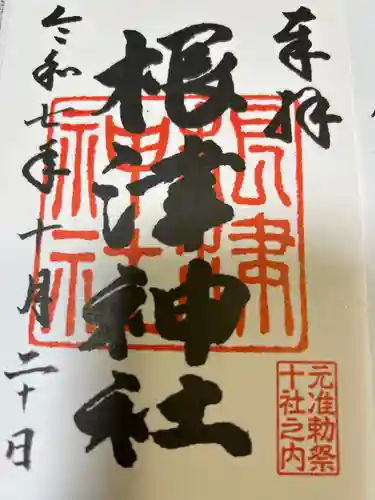 奉拝
根津神社
根津神社
元准勅祭
十社之内
令和七年十月二十日